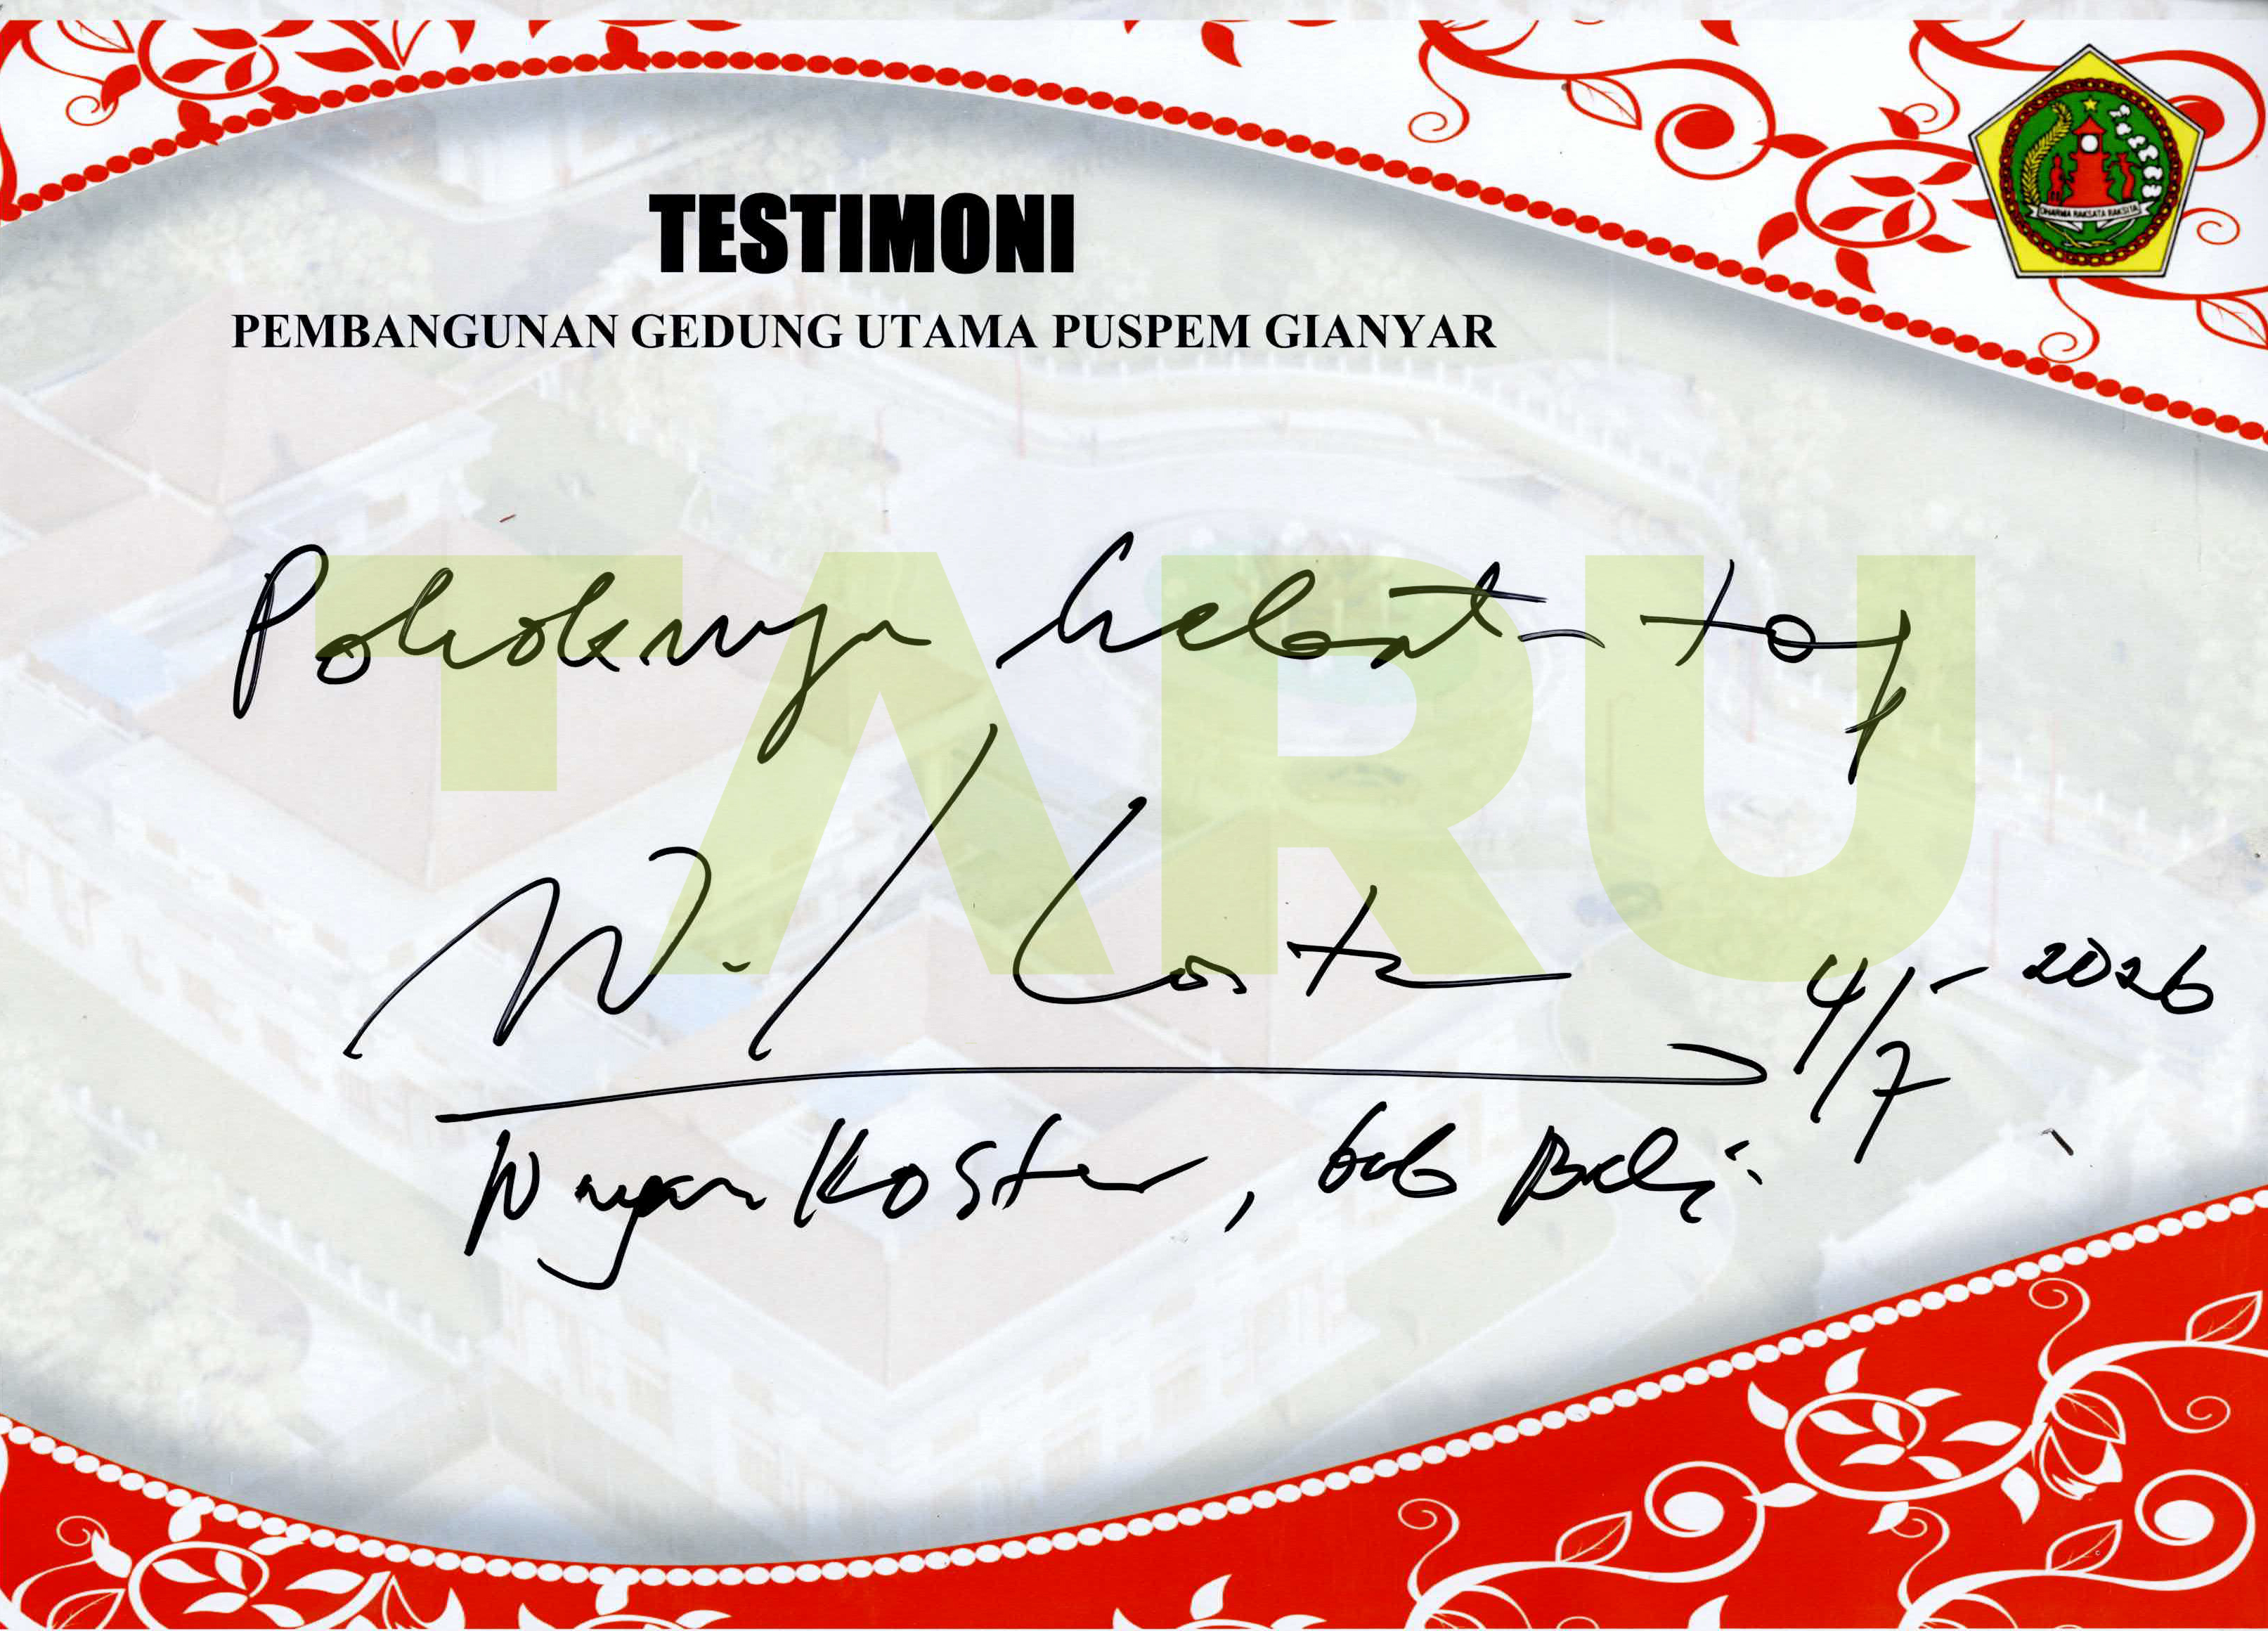 TESTIMONI
PEMBANGUNAN GEDUNG UTAMA PUSPEM GIANYAR
DHARMA RAKSATA RAKSITA
Pokoknya hebat top
TARU
W. Koster
4/7 - 2026
Wayan Koster, Gub Bali